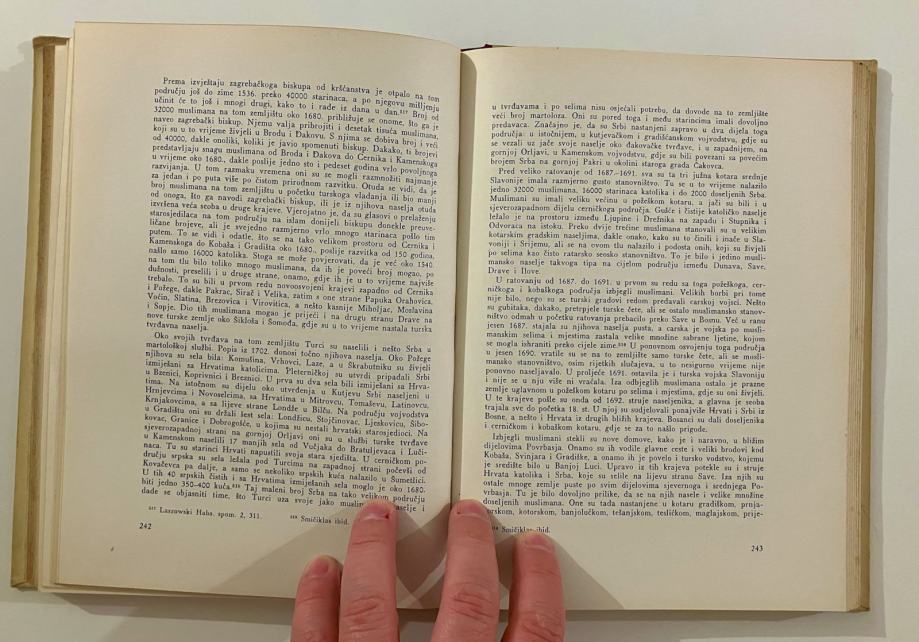 Prema izvještaju zagrebačkoga biskupa od kršćanstva je otpalo na tom
području još do zime 1536. preko 40000 starinaca, a po njegovu mišljenju
učinit će to još i mnogi drugi, kako to i rade iz dana u dan.²¹⁷ Broj od
32000 muslimana na tom zemljištu oko 1680. približuje se onome, što ga je
naveo zagrebački biskup. Njemu valja pribrojiti i desetak tisuća muslimana,
koji su u to vrijeme živjeli u Brodu i Đakovu. S njima se dobiva broj i veći
od 40000, dakle onoliki, koliki je javio spomenuti biskup. Dakako, ti brojevi
predstavljaju snagu muslimana od Broda i Đakova do Cernika i Kamenskoga
u vrijeme oko 1680., dakle poslije jedno sto i pedeset godina vrlo povoljnoga
razvijanja. U tom razmaku vremena oni su se mogli razmnožiti najmanje
za jedan i po puta više po čistom prirodnom razvitku. Otuda se vidi, da je
broj muslimana na tom zemljištu u početku turskoga vladanja ili bio manji
od onoga, što ga navodi zagrebački biskup, ili je iz njihova naselja otuda
izvršena veća seoba u druge krajeve. Vjerojatno je, da su glasovi o prelaženju
starosjedilaca na tom području na islam donijeli biskupu donekle preuve-
ličane brojeve, ali je svejedno razmjerno vrlo mnogo starinaca pošlo tim
putem. To se vidi i odatle, što se na tako velikom prostoru od Cernika i
Kamenskoga do Kobaša i Gradišta oko 1680., poslije razvitka od 150 godina,
našlo samo 16000 katolika. Stoga se može povjerovati, da je već oko 1540.
na tom tlu bilo toliko mnogo muslimana, da ih je poveći broj mogao, po
dužnosti, preseliti i u druge strane, onamo, gdje ih je u to vrijeme najviše
trebalo. To su bili u prvom redu novoosvojeni krajevi zapadno od Cernika
i Požege, dakle Pakrac, Sirač i Velika, zatim s one strane Papuka Orahovica,
Voćin, Slatina, Brezovica i Virovitica, a nešto kasnije Miholjac, Moslavina
i Sopje. Dio tih muslimana mogao je prijeći i na drugu stranu Drave na
nove turske zemlje oko Šikloša i Šomođa, gdje su u to vrijeme nastala turska
tvrđavna naselja.
Oko svojih tvrđava na tom zemljištu Turci su naselili i nešto Srba u
martološkoj službi. Popis iz 1702. donosi točno njihova naselja. Oko Požege
njihova su sela bila: Komušina, Vrhovci, Laze, a u Škrabutniku su živjeli
izmiješani sa Hrvatima katolicima. Pleterničkoj su utvrdi pripadali Srbi
u Bzenici, Koprivnici i Breznici. U prva su dva sela bili izmiješani sa Hrva-
tima. Na istočnom su dijelu oko utvrđenja u Kutjevu Srbi naseljeni u
Hrnjevcima i Novoselcima, sa Hrvatima u Mitrovcu, Tomaševu, Latinovcu,
Krnjakovcima, a sa lijeve strane Londže u Bilču. Na području vojvodstva
u Gradištu oni su držali šest sela: Londžicu, Stojčinovac, Ljeskovicu, Šibo-
kovac, Granice i Dobrogošće, u kojima su nestali hrvatski starosjedioci. Na
sjeverozapadnoj strani na gornjoj Orljavi oni su u službi turske tvrđave
u Kamenskom naselili 17 manjih sela od Vučjaka do Bratuljevaca i Luči-
naca. Tu su starinci Hrvati napustili svoja stara sjedišta. U cerničkom po-
dručju srpska su sela ležala pod Turcima na zapadnoj strani počevši od
Kovačevca pa dalje, a samo se nekoliko srpskih kuća nalazilo u Šumetlici.
U tih 40 srpskih čistih i sa Hrvatima izmiješanih sela moglo je oko 1680.
biti jedno 350-400 kuća.²¹⁸ Taj maleni broj Srba na tako velikom području
dade se objasniti time, što Turci uza svoje jako naselje i
²¹⁷ Laszowski Habs. spom. 2, 311.
²¹⁸ Smičiklas ibid.
242
u tvrđavama i po selima nisu osjećali potrebu, da dovode na to zemljište
veći broj martoloza. Oni su pored toga i među starincima imali dovoljno
predavaca. Značajno je, da su Srbi nastanjeni zapravo u dva dijela toga
područja: u istočnijem, u kutjevačkom i gradišćanskom vojvodstvu, gdje su
se vezali uz jače svoje naselje oko đakovačke tvrđave, i u zapadnijem, na
gornjoj Orljavi, u Kamenskom vojvodstvu, gdje su bili povezani sa povećim
brojem Srba na gornjoj Pakri u okolini staroga grada Čakovca.
Pred veliko ratovanje od 1687-1691. sva su ta tri južna kotara srednje
Slavonije imala razmjerno gusto stanovništvo. Tu se u to vrijeme nalazilo
jedno 32000 muslimana, 16000 starinaca katolika i do 2000 doseljenih Srba.
Muslimani su imali veliku većinu u požeškom kotaru, a jači su bili i u
sjeverozapadnom dijelu cerničkoga područja. Gušće i čistije katoličko naselje
ležalo je na prostoru između Ljupine i Drežnika na zapadu i Stupnika i
Odvoraca na istoku. Preko dvije trećine muslimana stanovali su u velikim
kotarskim gradskim naseljima, dakle onako, kako su to činili i inače u Sla-
voniji i Srijemu, ali se na ovom tlu nalazilo i podosta onih, koji su živjeli
po selima kao čisto ratarsko seosko stanovništvo. To je bilo i jedino musli-
mansko naselje takvoga tipa na cijelom području između Dunava, Save,
Drave i Ilove.
U ratovanju od 1687. do 1691. u prvom su redu sa toga požeškoga, cer-
ničkoga i kobaškoga područja izbjegli muslimani. Velikih borbi pri tome
nije bilo, nego su se turski gradovi redom predavali carskoj vojsci. Nešto
su gubitaka, dakako, pretrpjele turske čete, ali se ostalo muslimansko stanov-
ništvo odmah u početku ratovanja prebacilo preko Save u Bosnu. Već u ranu
jesen 1687. stajala su njihova naselja pusta, a carska je vojska po musli-
manskim selima i mjestima zastala velike množine sabrane ljetine, kojom
se mogla ishraniti preko cijele zime.²¹⁹ U ponovnom osvojenju toga područja
u jesen 1690. vratile su se na to zemljište samo turske čete, ali se musli-
mansko stanovništvo, osim rijetkih slučajeva, u to nesigurno vrijeme nije
ponovno naseljavalo. U proljeće 1691. ostavila je i turska vojska Slavoniju
i nije se u nju više ni vraćala. Iza odbjeglih muslimana ostalo je prazno
zemlje uglavnom u požeškom kotaru po selima i mjestima, gdje su oni živjeli.
U te krajeve pošle su onda od 1692. struje naseljenika, a glavna je seoba
trajala sve do početka 18. st. U njoj su sudjelovali ponajviše Hrvati i Srbi iz
Bosne, a nešto i Hrvata iz drugih bliših krajeva. Bosanci su dali doseljenika
i cerničkom i kobaškom kotaru, gdje se za to našlo prigode.
Izbjegli muslimani stekli su nove domove, kako je i naravno, u bližim
dijelovima Povrbasja. Onamo su ih vodile glavne ceste i veliki brodovi kod
Kobaša, Svinjara i Gradiške, a onamo ih je povelo i tursko vodstvo, kojemu
je središte bilo u Banjoj Luci. Upravo iz tih krajeva potekle su i struje
Hrvata katolika i Srba, koje su selile na lijevu stranu Save. Iza njih su
ostale mnoge zemlje puste po svim dijelovima sjevernoga i srednjega Po-
vrbasja. Tu je bilo dovoljno prilike, da se na njih nasele i velike množine
doseljenih muslimana. One su tada nastale u kotaru gradiškom, prnja-
kotorskom, banjolučkom, tešanjskom, tesličkom, maglajskom, prije-
Smičiklas ibid.
243